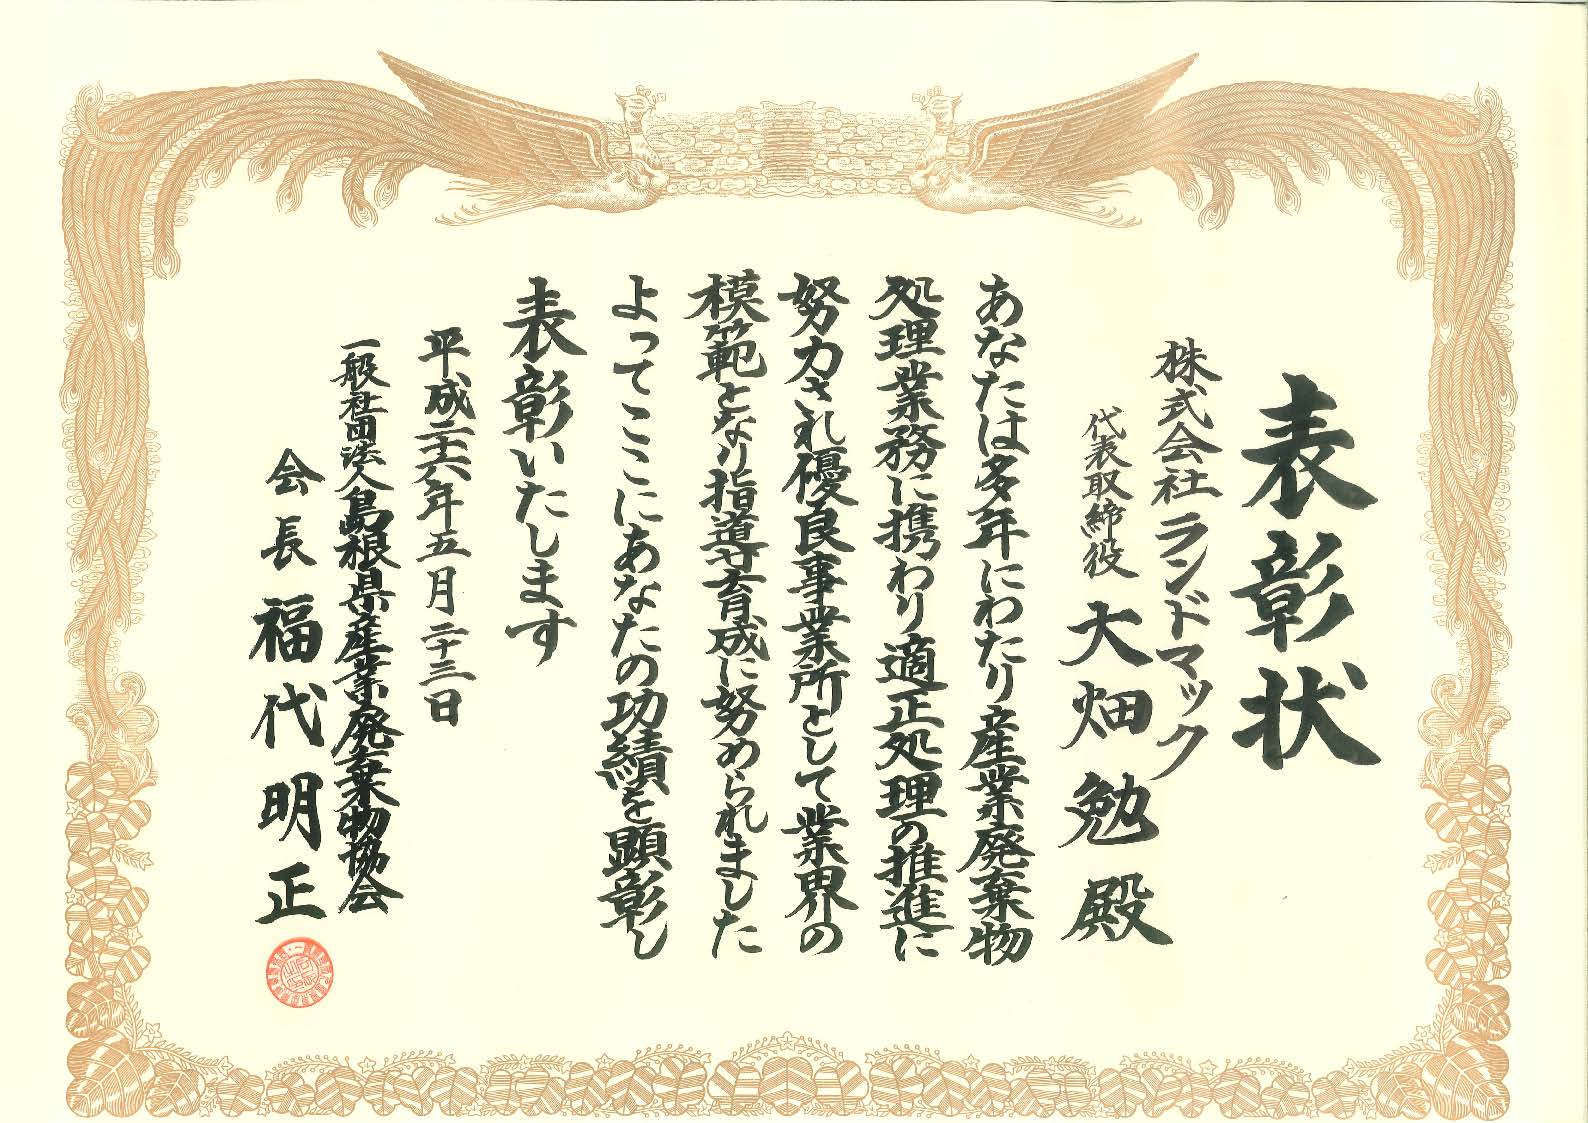 表彰状
株式会社ランドマック
代表取締役 大畑勉殿
あなたは多年にわたり産業廃棄物
処理業務に携わり適正処理の推進に
努力され優良事業所として業界の
模範となり指導育成に努められました
よってここにあなたの功績を顕彰し
表彰いたします
平成二十六年五月二十三日
一般社団法人島根県産業廃棄物協会
会長 福代明正